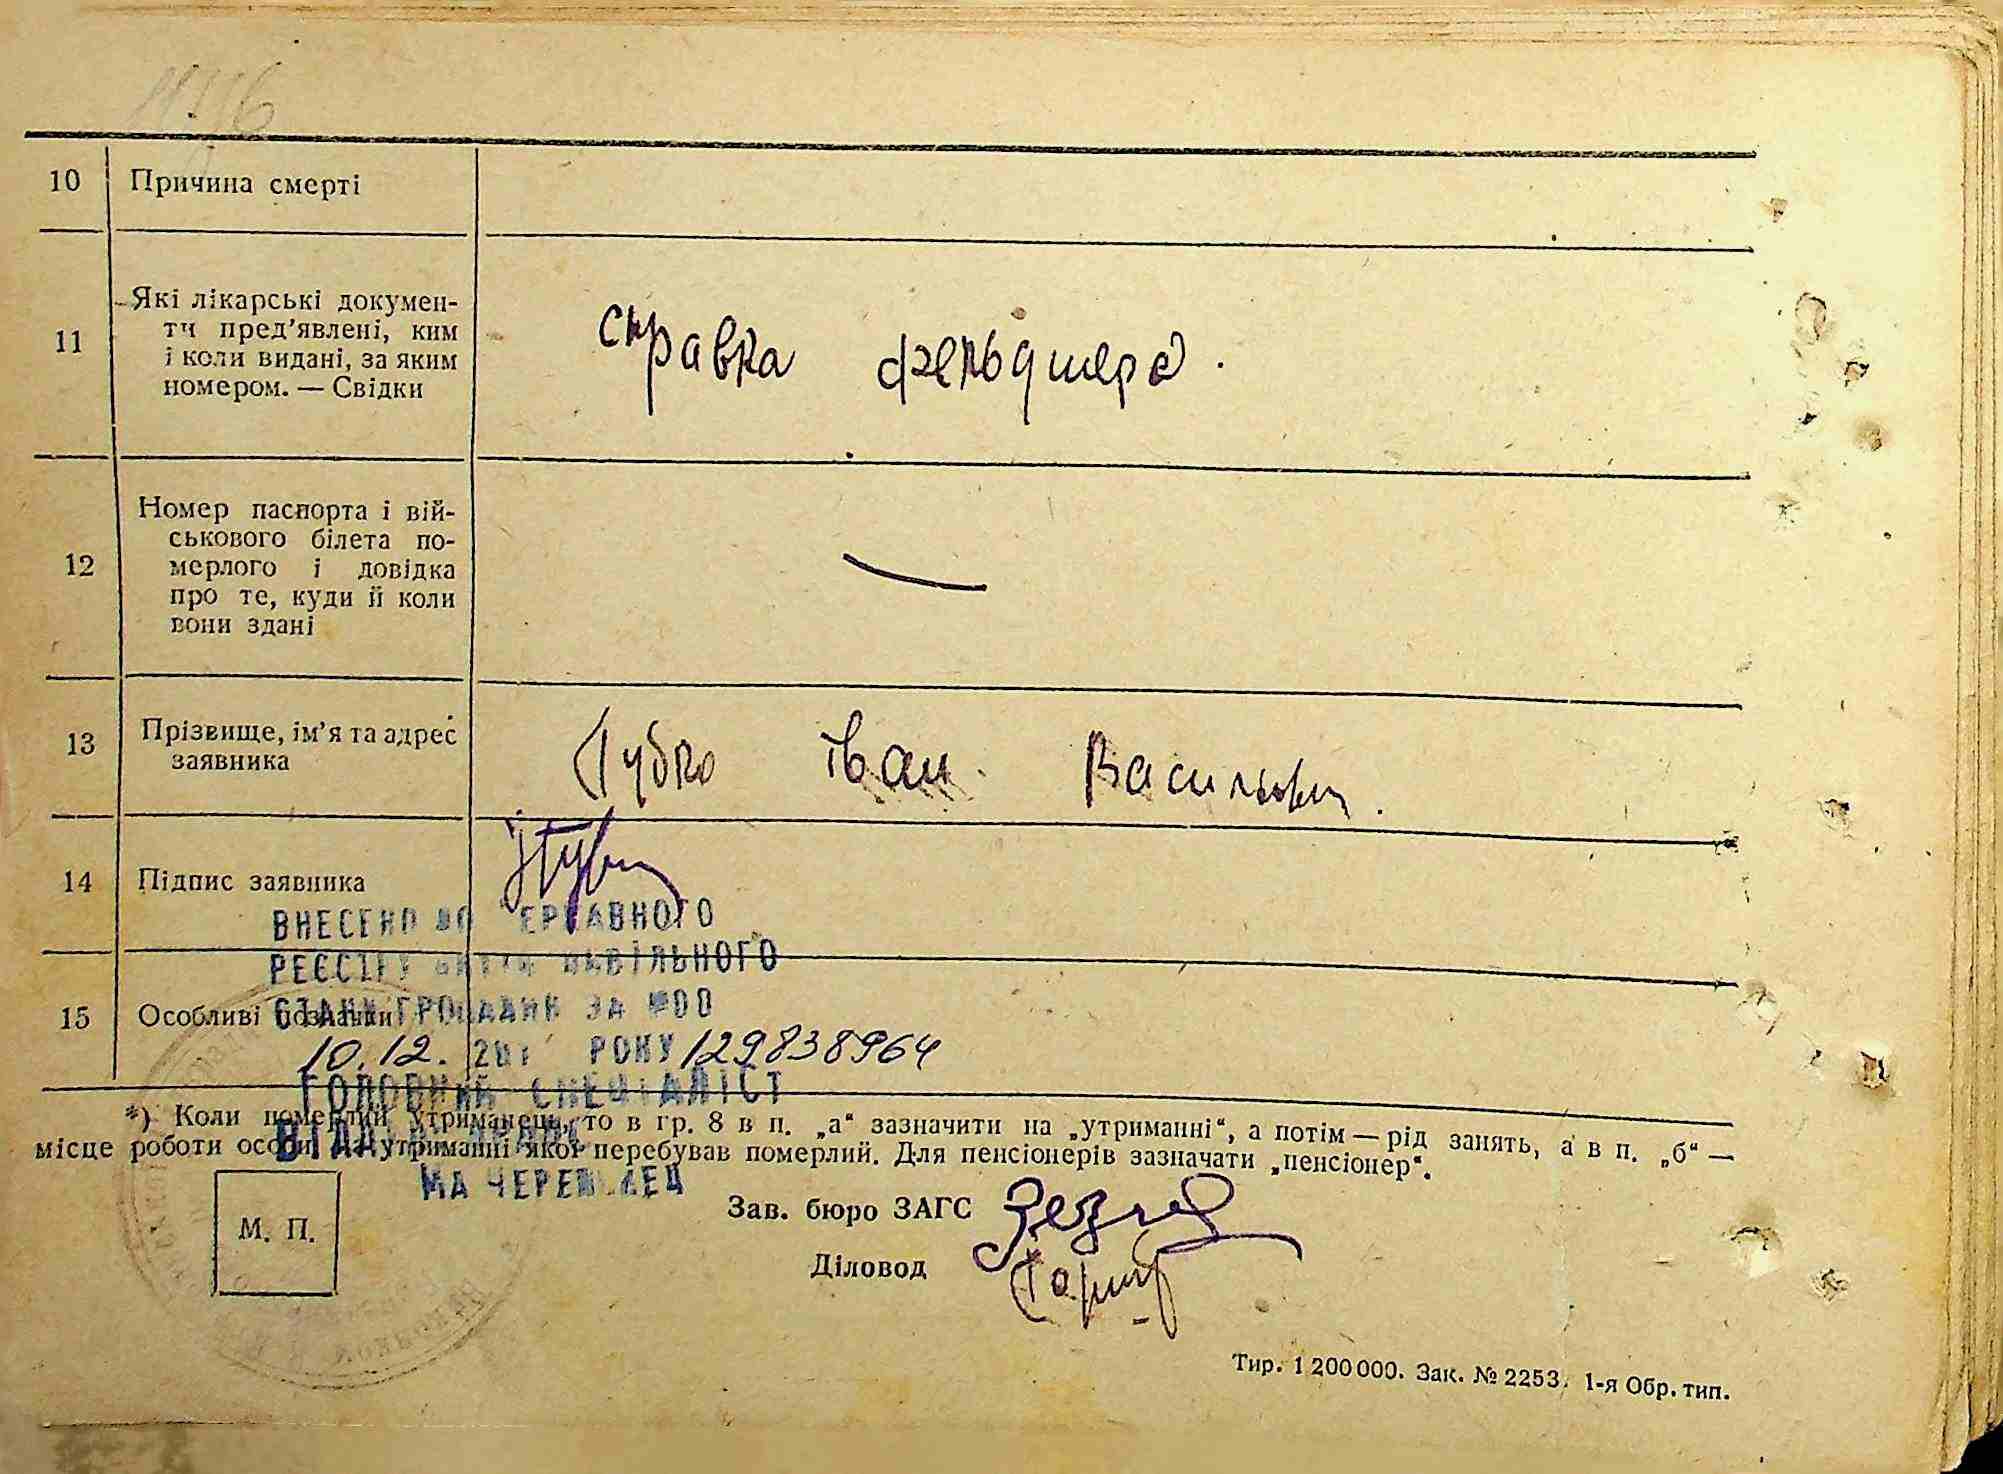 10 Причина смерті
11 Які лікарські докумен-
ти пред’явлені, ким
і коли видані, за яким
номером. — Свідки
справка фельдшера.
12 Номер паспорта і вій-
ськового білета по-
мерлого і довідка
про те, куди й коли
вони здані
—
13 Прізвище, ім’я та адрес
заявника
Губко Іван Васильович.
14 Підпис заявника
ВНЕСЕНО ДО ДЕРЖАВНОГО
РЕЄСТРУ АКТІВ ЦИВІЛЬНОГО
15 Особливі познаки
СТАНУ ГРОМАДЯН ЗА №00
10.12. РОКУ 129838964
ГОЛОВНИЙ СПЕЦІАЛІСТ
*) Коли померлий утриманець, то в гр. 8 в п. „а“ зазначити на „утриманні“, а потім — рід занять, а в п. „б“ —
місце роботи особи, на утриманні якої перебував померлий. Для пенсіонерів зазначати „пенсіонер“.
МА ЧЕРЕПОВЕЦ
М. П.
Зав. бюро ЗАГС
Діловод
Тир. 1 200 000. Зак. № 2253. 1-я Обр. тип.